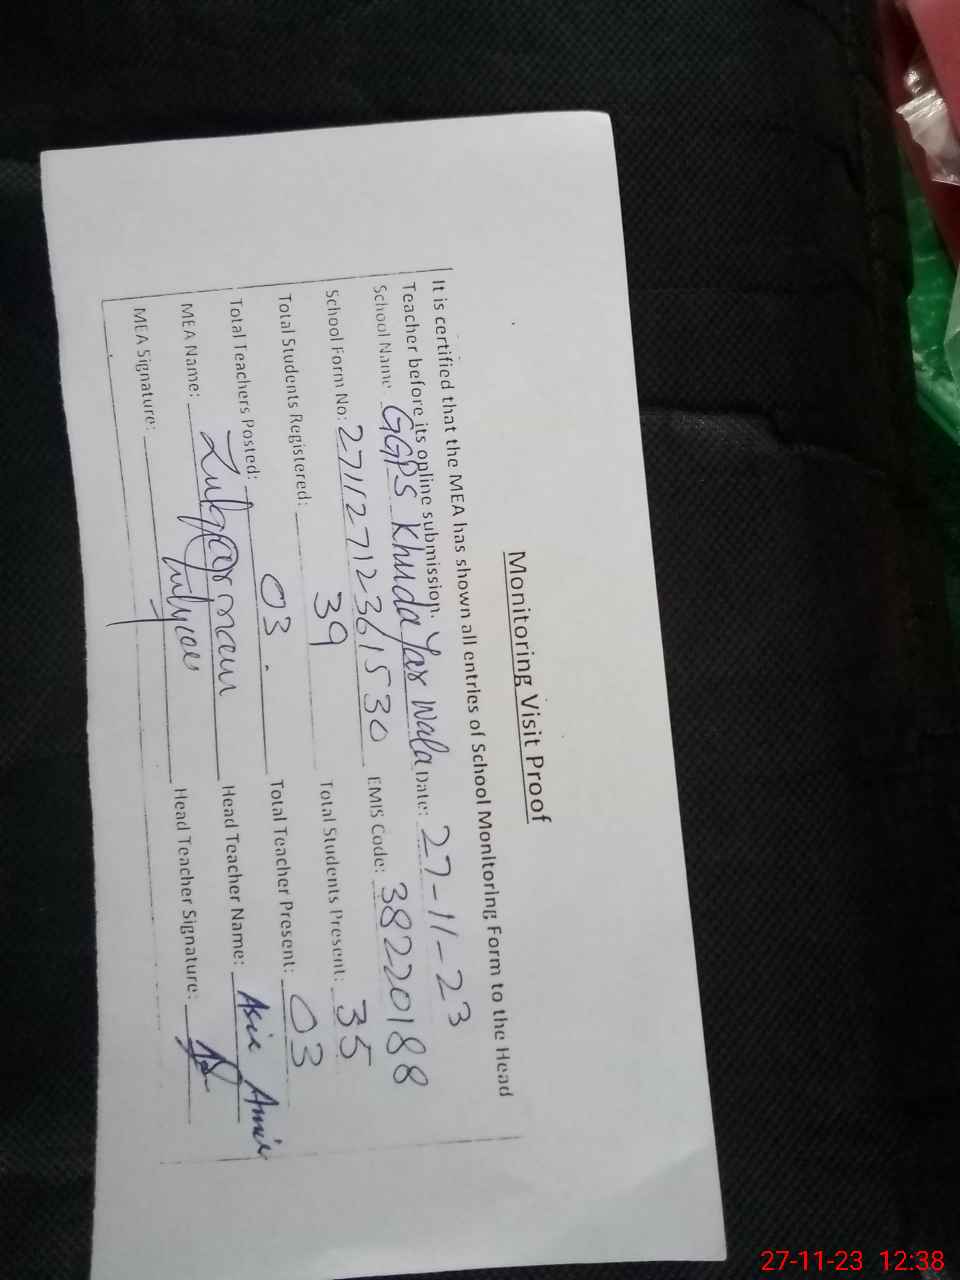 Monitoring Visit Proof
It is certified that the MEA has shown all entries of School Monitoring Form to the Head
Teacher before its online submission.
School Name: GGPS Khuda Yar Wala Date: 27-11-23
School Form No: 27112712361530 EMIS Code: 38220188
Total Students Registered: 39 Total Students Present: 35
Total Teachers Posted: 03. Total Teacher Present: 03
MEA Name: Head Teacher Name:
MEA Signature: Head Teacher Signature:
27-11-23 12:38